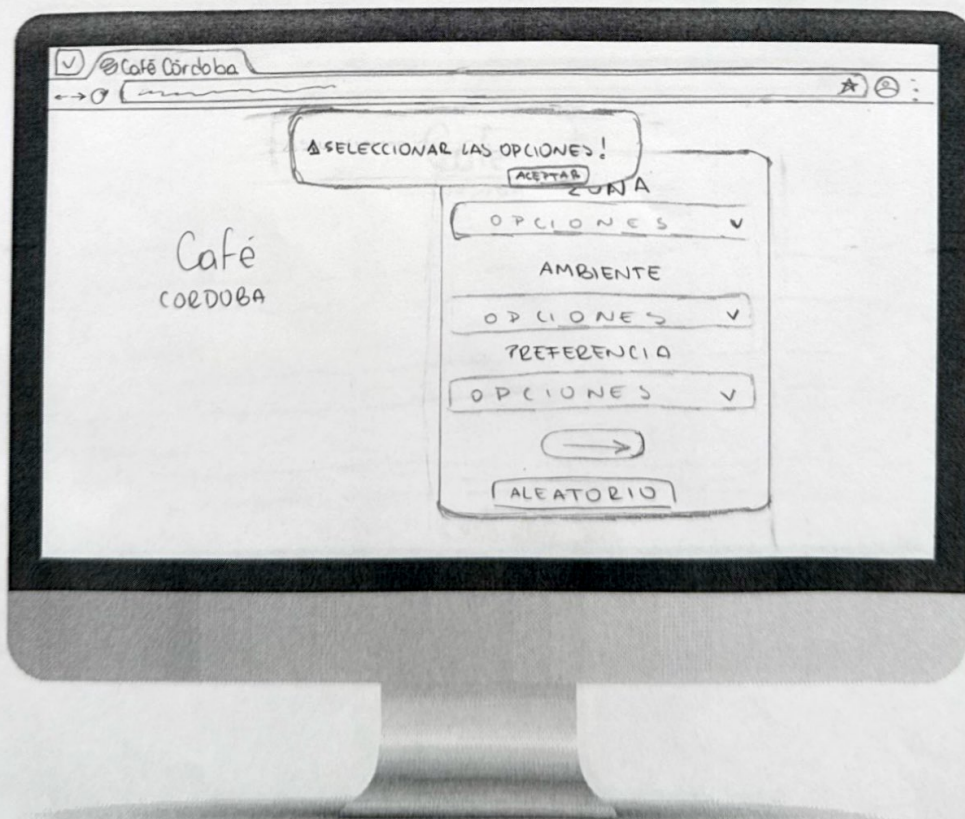 Café Córdoba
⚠ SELECCIONAR LAS OPCIONES!
ACEPTAR
ZONA
OPCIONES
Café
CORDOBA
AMBIENTE
OPCIONES
PREFERENCIA
OPCIONES
ALEATORIO